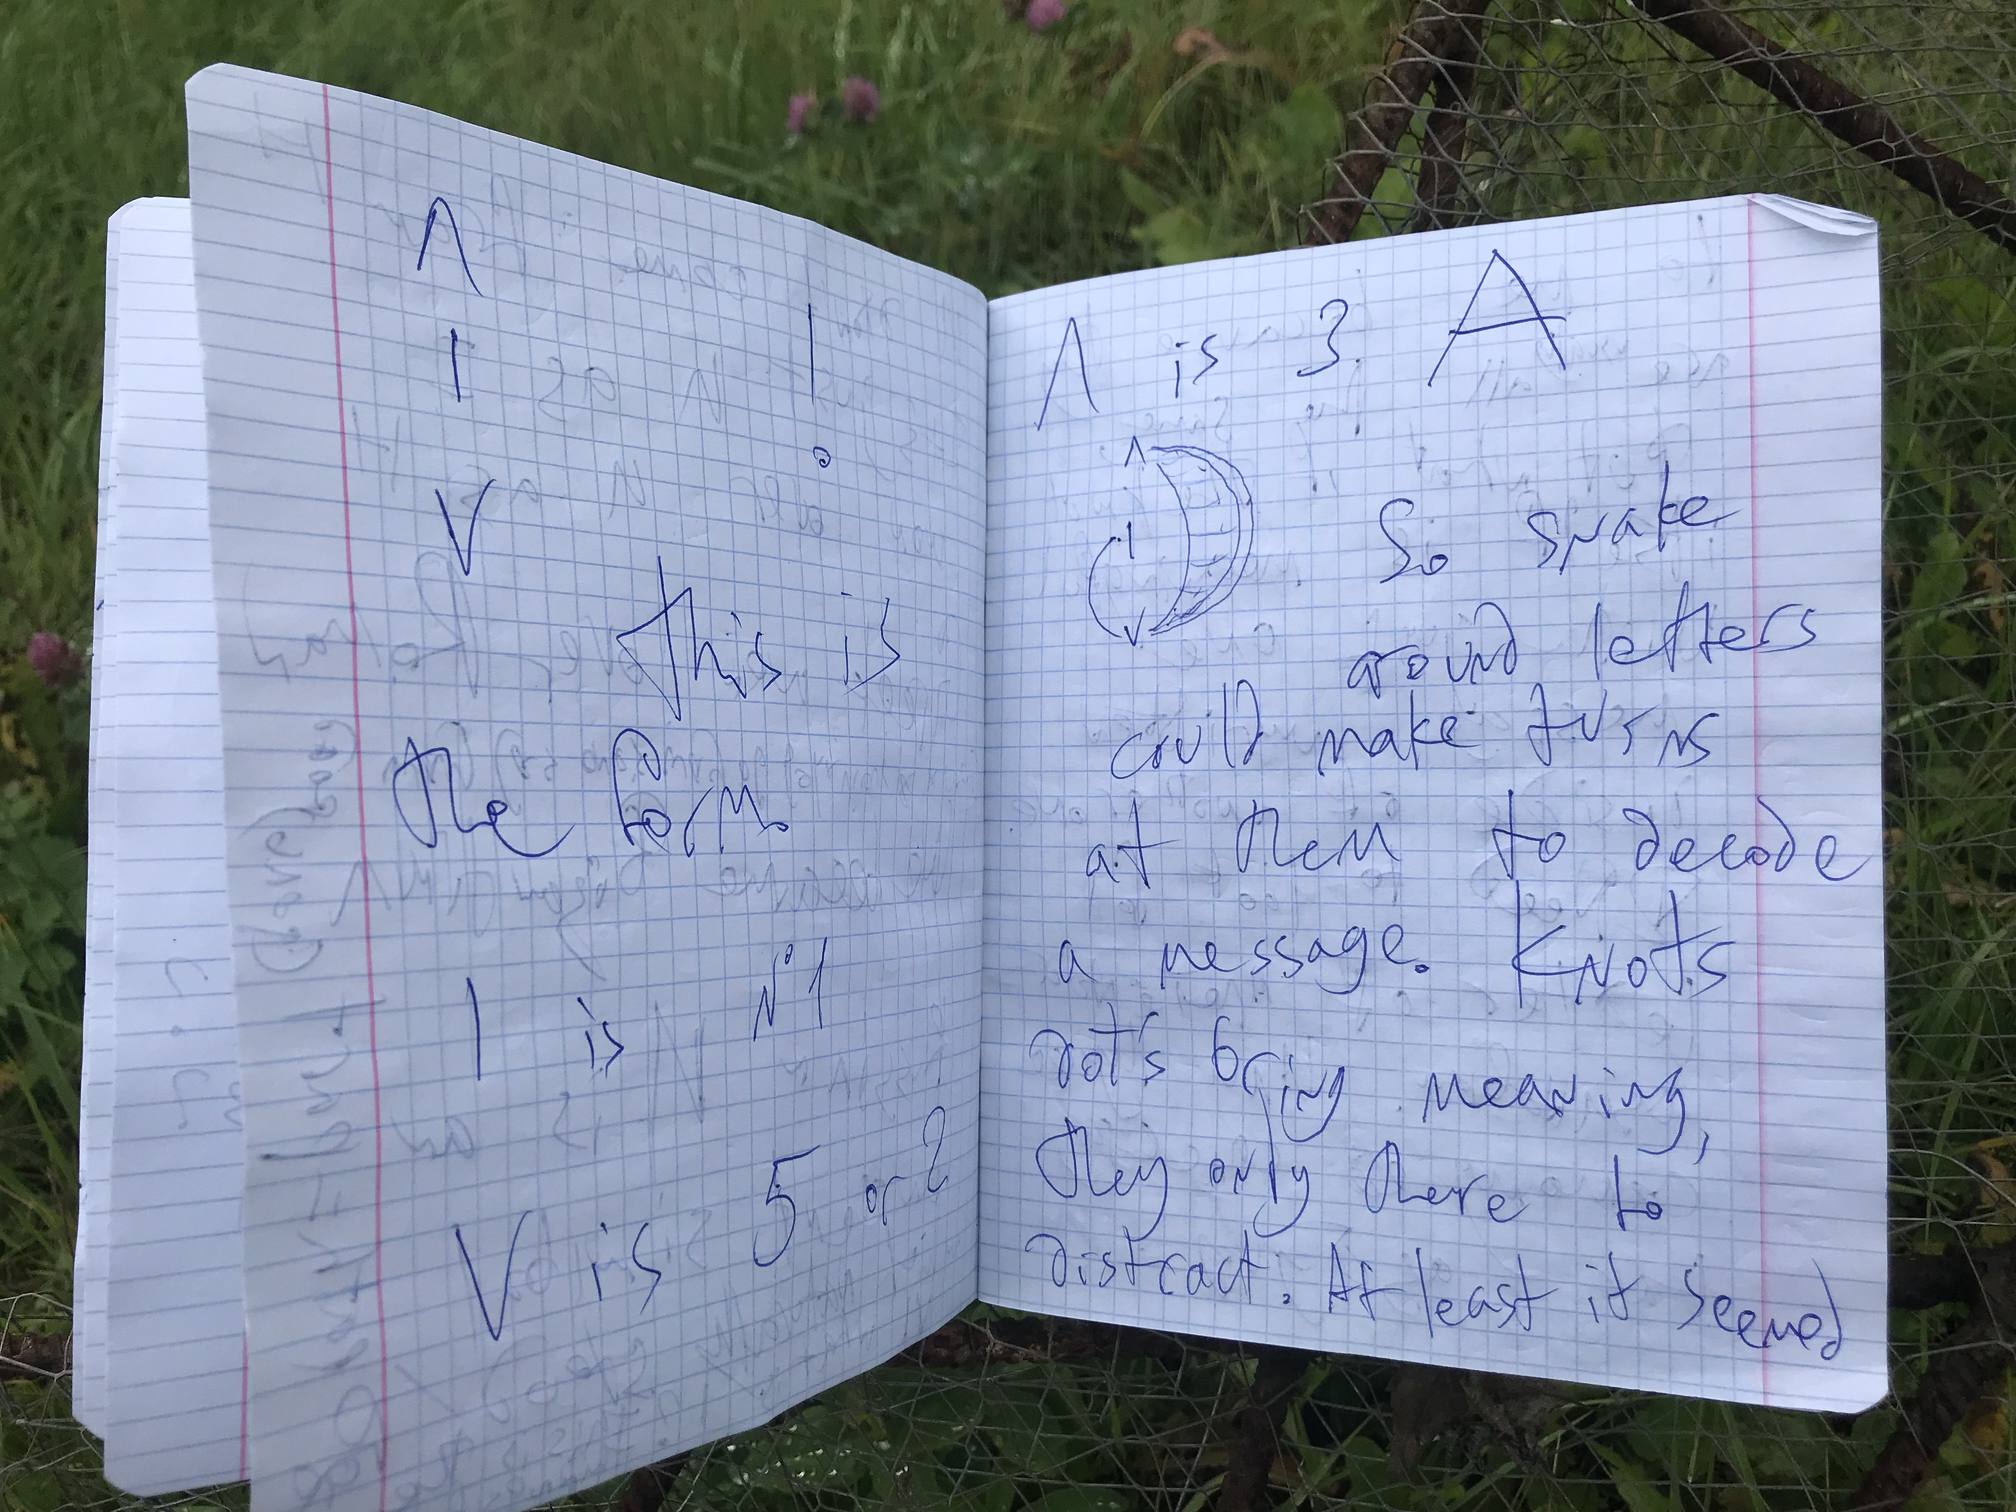 Λ
I !
V
This is
the form.
I is №1
V is 5 or 2
Λ is 3. A
Λ
I
V
So snake
around letters
could make turns
at them to decode
a message. Knots
dots bring meaning,
they only there to
distract. At least it seemed